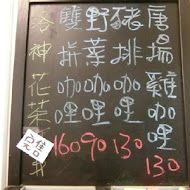 唐揚雞咖哩
130
豬排咖哩
130
野菜咖哩
90
雙拼咖哩
160
洛神花茶